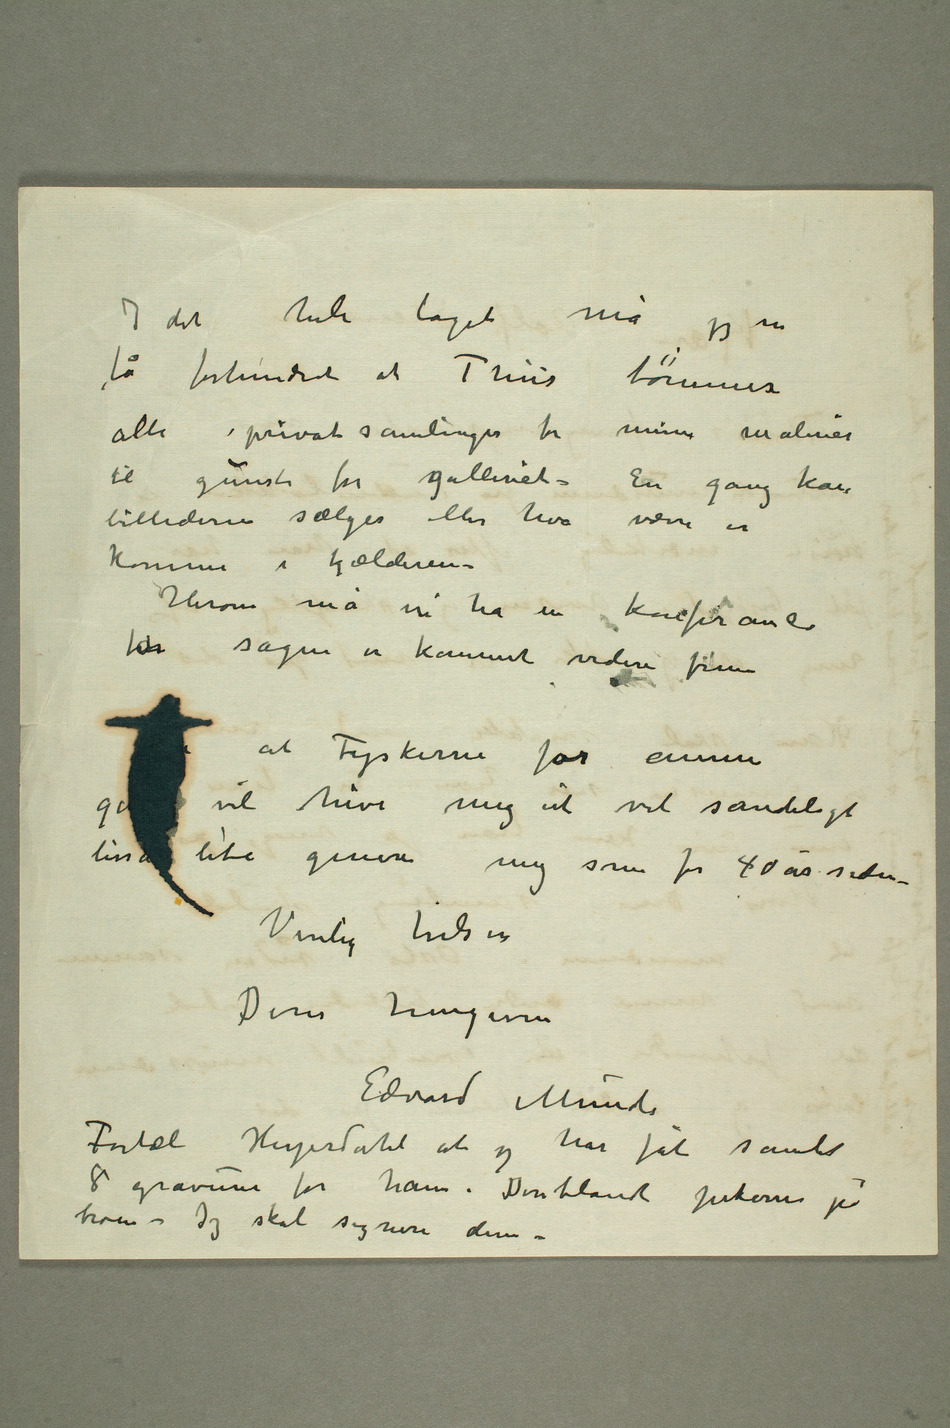 I det hele taget må jeg nu
få forhindret at Thiis tømmer
alle privatsamlinger for mine malerier
til gunst for galleriet – En gang kan
billederne sælges eller hva værre er
komme i kjælderen –
Herom må vi ha en konferance
før sagen er kommet videre frem
at Tyskerne for annen
gang vil hive mig ut vil sandeligt
lissa lite genere mig som for 40 år siden –
Venlig hilsen
Deres hengivne
Edvard Munch
Fortæl Heyerdahl at jeg har fåt samlet
8 gravurer for ham. Deriblandt pikerne på
broen – Jeg skal signere dem –